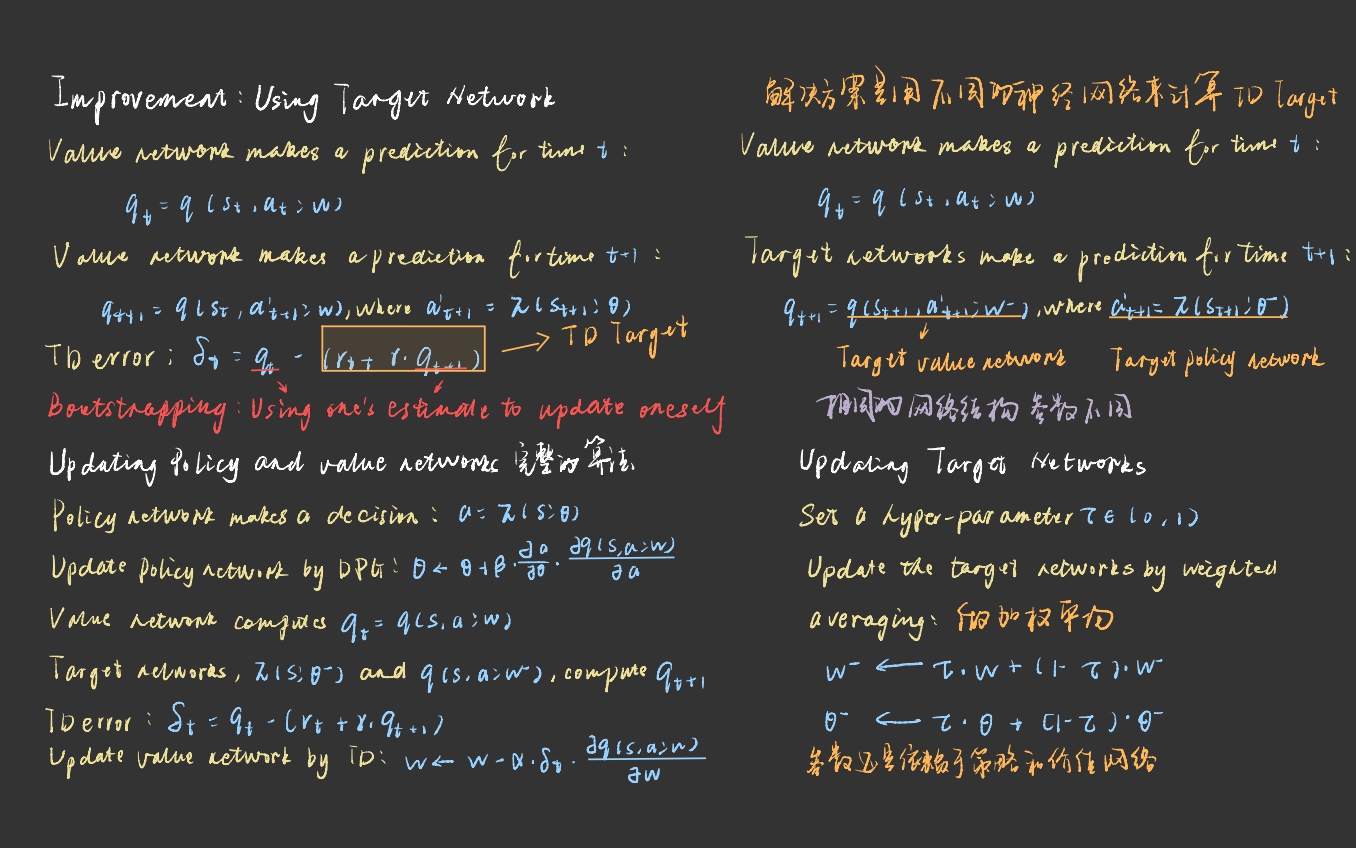 Improvement: Using Target Network
Value network makes a prediction for time t:
q_t = q(s_t, a_t; w)
Value network makes a prediction for time t+1:
q_{t+1} = q(s_t, a'_{t+1}; w), where a'_{t+1} = π(s_{t+1}; θ)
TD error: δ_t = q_t - (r_t + γ·q_{t+1}) → TD Target
Bootstrapping: Using one's estimate to update oneself
Updating Policy and value networks 完整的算法
Policy network makes a decision: a = π(s; θ)
Update policy network by DPG: θ ← θ + β·∂a/∂θ·∂q(s,a;w)/∂a
Value network computes q_t = q(s, a; w)
Target networks, π(s; θ⁻) and q(s, a; w⁻), compute q_{t+1}
TD error: δ_t = q_t - (r_t + γ·q_{t+1})
Update value network by TD: w ← w - α·δ_t·∂q(s,a;w)/∂w
解决方案是用不同的神经网络来计算 TD Target
Value network makes a prediction for time t:
q_t = q(s_t, a_t; w)
Target networks make a prediction for time t+1:
q_{t+1} = q(s_{t+1}, a'_{t+1}; w⁻), where a'_{t+1} = π(s_{t+1}; θ⁻)
Target value network Target policy network
相同的网络结构 参数不同
Updating Target Networks
Set a hyper-parameter τ ∈ (0, 1)
Update the target networks by weighted
averaging: 做加权平均
w⁻ ← τ·w + (1-τ)·w⁻
θ⁻ ← τ·θ + (1-τ)·θ⁻
参数还是依赖于策略和价值网络